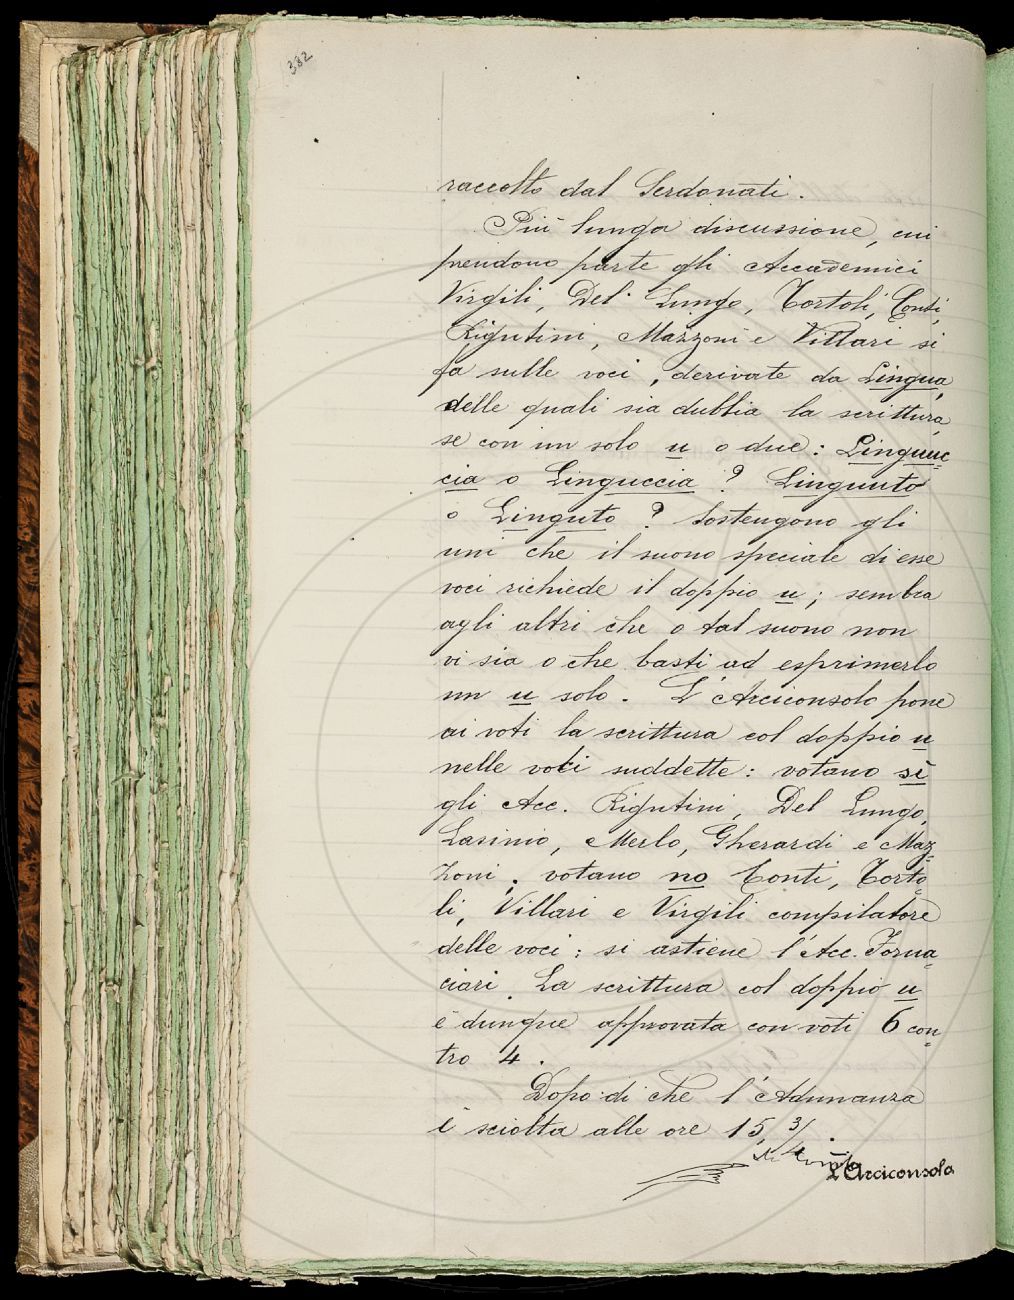 332
raccolto dal Serdonati.
Più lunga discussione, cui
prendono parte gli Accademici
Virgili, Del Lungo, Tortoli, Conti,
Rigutini, Mazzoni e Villari si
fa sulle voci, derivate da Lingua,
delle quali sia dubbia la scrittura,
se con un solo u o due: Linguuc=
cia o Linguccia? Linguuto
o Linguto? Sostengono gli
uni che il suono speciale di esse
voci richiede il doppio u; sembra
agli altri che o tal suono non
vi sia o che basti ad esprimerlo
un u solo. L'Arciconsolo pone
ai voti la scrittura col doppio u
nelle voci suddette: votano sì
gli Acc. Rigutini, Del Lungo,
Lasinio, Merlo, Gherardi e Maz=
zoni; votano no Conti, Torto=
li, Villari e Virgili compilatore
delle voci: si astiene l'Acc. Forna=
ciari. La scrittura col doppio u
è dunque approvata con voti 6 con=
tro 4.
Dopo di che l'Adunanza
è sciolta alle ore 15 3/4.
L'Arciconsolo